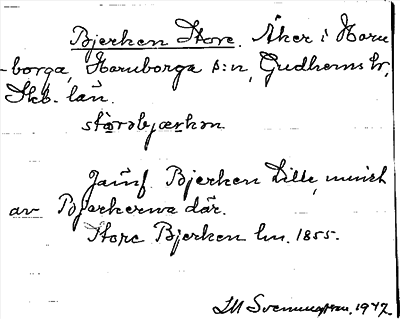 Bjerken Store. Åker i Horn-
-borga, Hornborga s:n, Gudhems hd,
Skb. län.
störəbjærkən.
Jämf. Bjerken Lille, minst
av Bjerkerna där.
Store Bjerken lm. 1855.
IM Svennungsson, 1947.